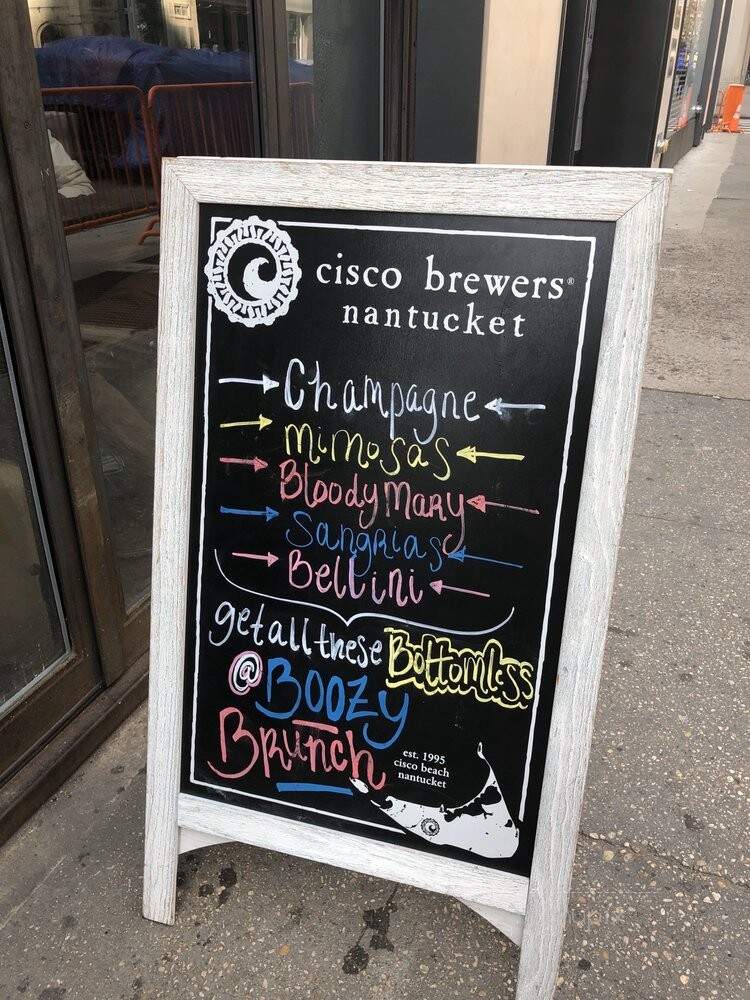 cisco brewers®
nantucket
Champagne
Mimosas
Bloody Mary
Sangrias
Bellini
get all these Bottomless
@ Boozy
Brunch
est. 1995
cisco beach
nantucket